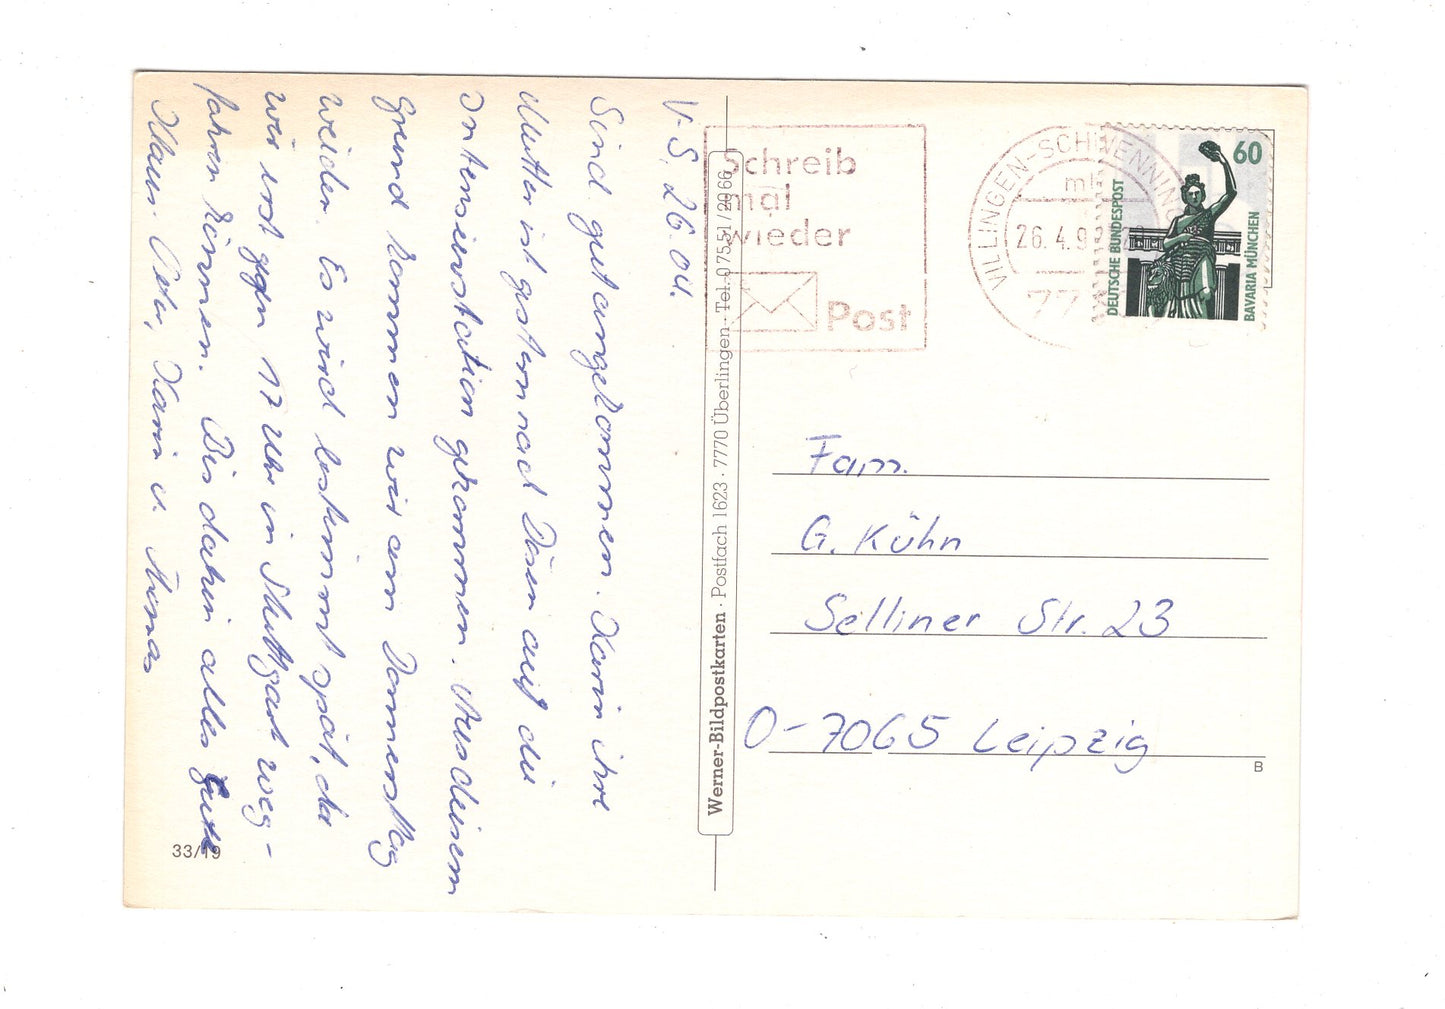 V-S. 26.04.
Sind gut angekommen. Karin ihre
Mutter ist gestern nach Düsen auf die
Intensivstation gekommen. Aus diesem
Grund kommen wir am Donnerstag
wieder. Es wird bestimmt spät, da
wir erst gegen 17 Uhr in Stuttgart weg-
fahren können. Bis dahin alles Gute
Klaus-Peter, Karin u.
33/19
Werner-Bildpostkarten · Postfach 1623 · 7770 Überlingen · Tel. 07551/2066
Schreib
mal
wieder
Post
VILLINGEN-SCHWENNING
26.4.9
77
60
DEUTSCHE BUNDESPOST
BAVARIA MÜNCHEN
Fam.
G. Kühn
Selliner Str. 23
O-7065 Leipzig
B